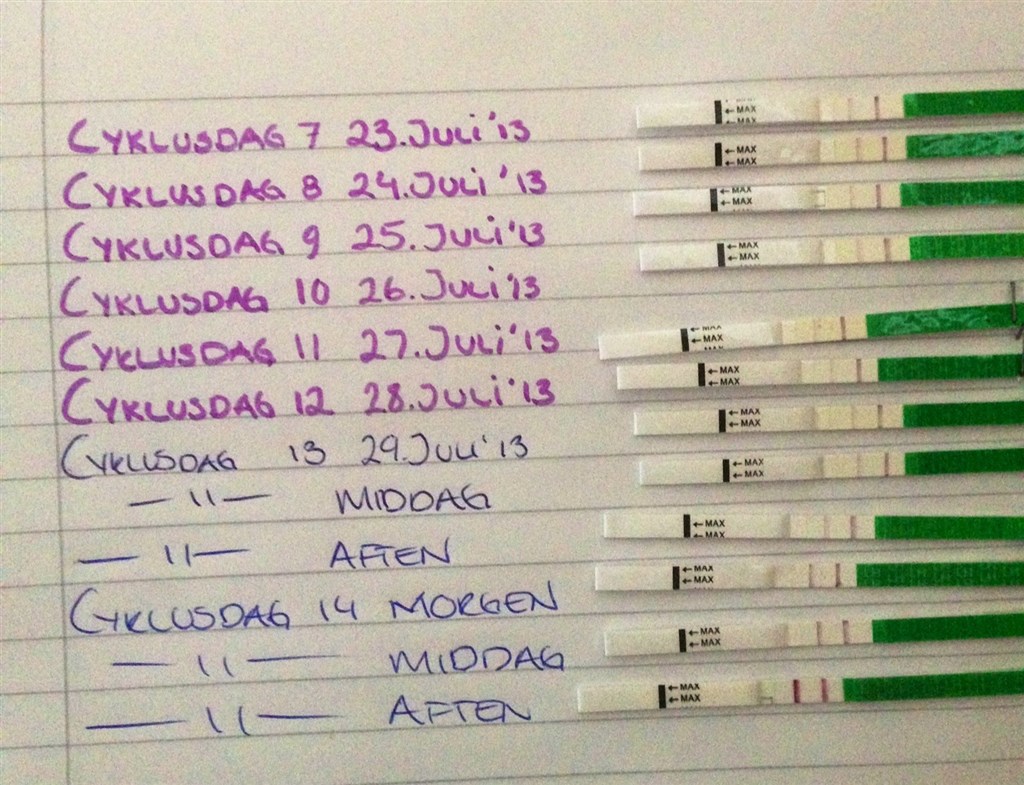 CYKLUSDAG 7 23.JULI '13
← MAX
← MAX
CYKLUSDAG 8 24.JULI '13
← MAX
← MAX
CYKLUSDAG 9 25.JULI '13
← MAX
← MAX
CYKLUSDAG 10 26.JULI '13
← MAX
← MAX
CYKLUSDAG 11 27.JULI '13
← MAX
← MAX
CYKLUSDAG 12 28.JULI '13
← MAX
← MAX
CYKLUSDAG 13 29.JULI '13
← MAX
← MAX
— 11 — MIDDAG
← MAX
← MAX
— 11 — AFTEN
← MAX
← MAX
CYKLUSDAG 14 MORGEN
← MAX
← MAX
— 11 — MIDDAG
← MAX
← MAX
— 11 — AFTEN
← MAX
← MAX